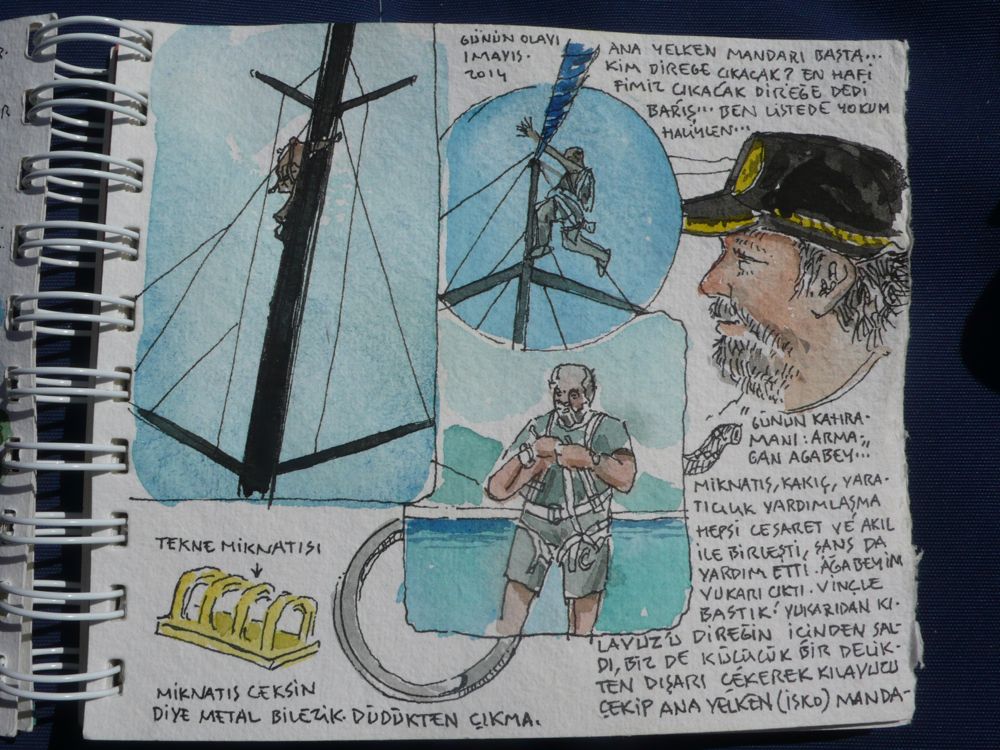 GÜNÜN OLAYI
1 MAYIS.
2014
ANA YELKEN MANDARI BAŞTA...
KİM DİREĞE ÇIKACAK? EN HAFİ
FİMİZ ÇIKACAK DİREĞE DEDİ
BARIŞ... BEN LİSTEDE YOKUM
HALİYLEN...
GÜNÜN KAHRA-
MANI: ARMA-
ĞAN AĞABEY...
MIKNATIS, KAKIÇ, YARA-
TICILIK YARDIMLAŞMA
HEPSİ CESARET VE AKIL
İLE BİRLEŞTİ, ŞANS DA
YARDIM ETTİ. AĞABEYİM
YUKARI ÇIKTI. VİNÇLE
BASTIK. YUKARIDAN KI-
LAVUZU DİREĞİN İÇİNDEN SAL-
DI, BİZ DE KÜÇÜCÜK BİR DELİK-
TEN DIŞARI ÇEKEREK KILAVUZU
ÇEKİP ANA YELKEN (ISKO) MANDA-
TEKNE MIKNATISI
MIKNATIS ÇEKSİN
DİYE METAL BİLEZİK. DÜDÜKTEN ÇIKMA.